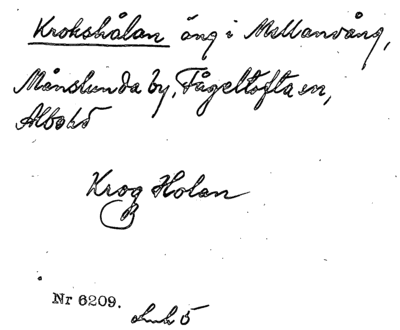 Krokshålan äng i Mellanvång,
Månslunda by, Fågeltofta sn,
Albo hd
Krog Holan
Nr 6209.